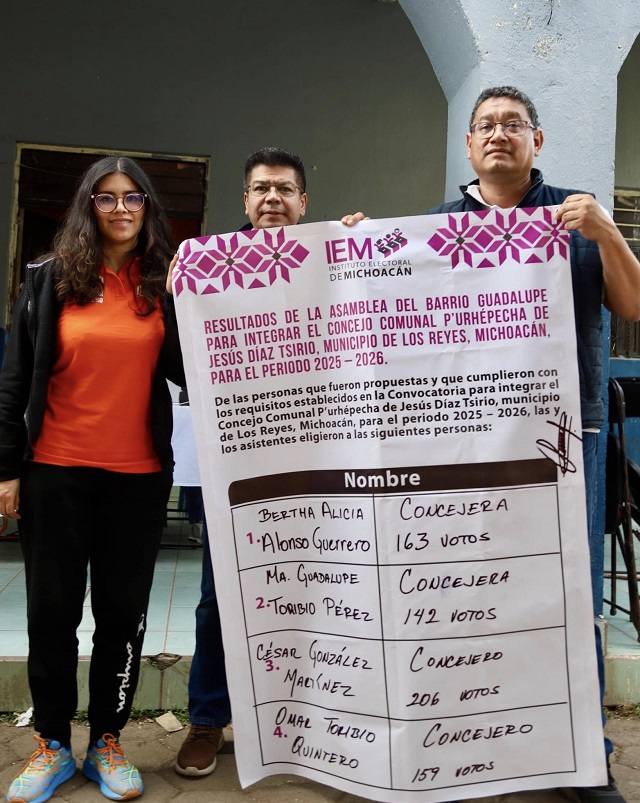 IEM
INSTITUTO ELECTORAL
DE MICHOACÁN
RESULTADOS DE LA ASAMBLEA DEL BARRIO GUADALUPE
PARA INTEGRAR EL CONCEJO COMUNAL P'URHÉPECHA DE
JESÚS DÍAZ TSIRIO, MUNICIPIO DE LOS REYES, MICHOACÁN,
PARA EL PERIODO 2025 – 2026.
De las personas que fueron propuestas y que cumplieron con
los requisitos establecidos en la Convocatoria para integrar el
Concejo Comunal P'urhépecha de Jesús Díaz Tsirio, municipio
de Los Reyes, Michoacán, para el periodo 2025 – 2026, las y
los asistentes eligieron a las siguientes personas:
Nombre
BERTHA ALICIA
1. ALONSO GUERRERO
CONCEJERA
163 VOTOS
MA. GUADALUPE
2. TORIBIO PÉREZ
CONCEJERA
142 VOTOS
CÉSAR GONZÁLEZ
3. MARTÍNEZ
CONCEJERO
206 VOTOS
OMAR TORIBIO
4. QUINTERO
CONCEJERO
159 VOTOS
Champion